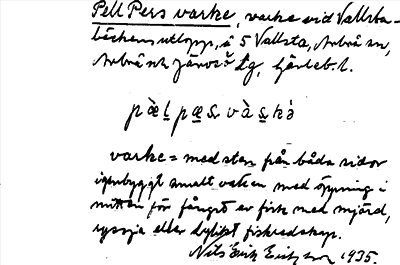 Pell Pers varke, varke vid Vallsta-
bäckens utlopp, å 5 Vallsta, Arbrå sn,
Arbrå och Järvsö tg, Gävleb. l.
pæ̀l pæs və̀skə̀
varke = med sten från båda sidor
igenbyggt smalt vatten med öppning i
mitten för fångst av fisk med mjärd,
ryssja eller dylikt fiskredskap.
Nils Erik Eriksson 1935.